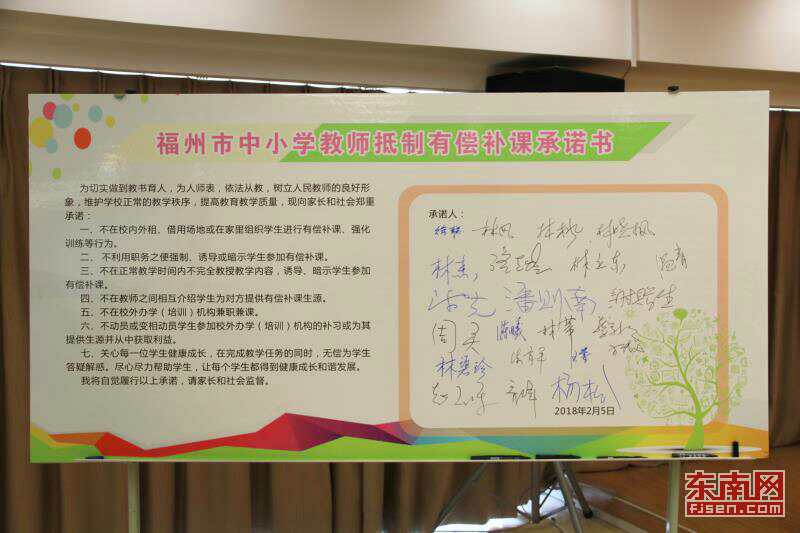 福州市中小学教师抵制有偿补课承诺书
为切实做到教书育人，为人师表，依法从教，树立人民教师的良好形
象，维护学校正常的教学秩序，提高教育教学质量，现向家长和社会郑重
承诺：
一、不在校内外租、借用场地或在家里组织学生进行有偿补课、强化
训练等行为。
二、不利用职务之便强制、诱导或暗示学生参加有偿补课。
三、不在正常教学时间内不完全教授教学内容，诱导、暗示学生参加
有偿补课。
四、不在教师之间相互介绍学生为对方提供有偿补课生源。
五、不在校外办学（培训）机构兼职兼课。
六、不动员或变相动员学生参加校外办学（培训）机构的补习或为其
提供生源并从中获取利益。
七、关心每一位学生健康成长，在完成教学任务的同时，无偿为学生
答疑解惑。尽心尽力帮助学生，让每个学生都得到健康成长和谐发展。
我将自觉履行以上承诺，请家长和社会监督。
承诺人：
潘则南
周灵
杨松
2018年2月5日
东南网
fjsen.com